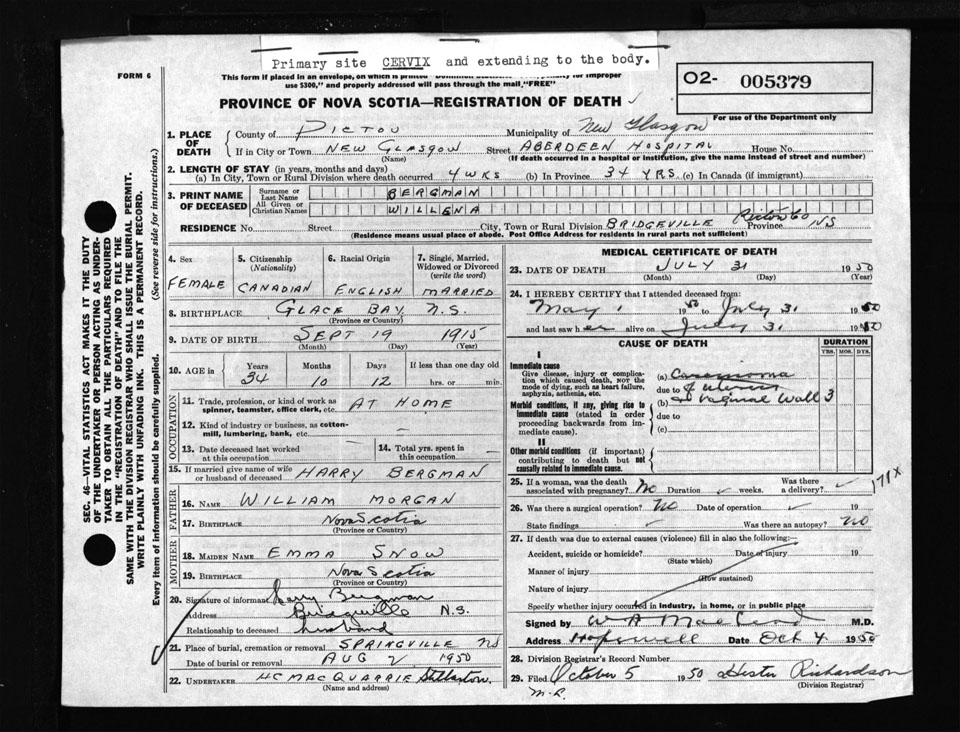 Primary site CERVIX and extending to the body.
FORM 6
This form if placed in an envelope, on which is printed "Dominion Statistics
use $300," and properly addressed will pass through the mail "FREE"
O2- 005379
For use of the Department only
PROVINCE OF NOVA SCOTIA—REGISTRATION OF DEATH
1. PLACE OF DEATH
County of PICTOU Municipality of New Glasgow
If in City or Town NEW GLASGOW Street ABERDEEN HOSPITAL House No.
(Name) (If death occurred in a hospital or institution, give the name instead of street and number)
2. LENGTH OF STAY (in years, months and days)
(a) In City, Town or Rural Division where death occurred 4 WKS (b) In Province 34 YRS. (c) In Canada (if immigrant)
3. PRINT NAME OF DECEASED
Surname or Last Name BERGMAN
All Given or Christian Names WILLENA
RESIDENCE No. Street City, Town or Rural Division BRIDGEVILLE Pictou Co Province NS
(Residence means usual place of abode. Post Office Address for residents in rural parts not sufficient)
4. Sex FEMALE
5. Citizenship (Nationality) CANADIAN
6. Racial Origin ENGLISH
7. Single, Married, Widowed or Divorced (write the word) MARRIED
8. BIRTHPLACE GLACE BAY, N.S.
(Province or Country)
9. DATE OF BIRTH SEPT 19 1915
(Month) (Day) (Year)
10. AGE in Years 34 Months 10 Days 12 If less than one day old hrs. or min.
OCCUPATION
11. Trade, profession, or kind of work as spinner, teamster, office clerk, etc. AT HOME
12. Kind of industry or business, as cotton-mill, lumbering, bank, etc. —
13. Date deceased last worked at this occupation —
14. Total yrs. spent in this occupation —
15. If married give name of wife or husband of deceased HARRY BERGMAN
FATHER
16. NAME WILLIAM MORGAN
17. BIRTHPLACE Nova Scotia
(Province or Country)
MOTHER
18. MAIDEN NAME EMMA SNOW
19. BIRTHPLACE Nova Scotia
(Province or Country)
20. Signature of informant Harry Bergman
Address Bridgeville N.S.
Relationship to deceased husband
21. Place of burial, cremation or removal SPRINGVILLE NS
Date of burial or removal AUG 2, 1950
22. UNDERTAKER HC MACQUARRIE Stellarton
(Name and address)
MEDICAL CERTIFICATE OF DEATH
23. DATE OF DEATH JULY 31 1950
(Month) (Day) (Year)
24. I HEREBY CERTIFY that I attended deceased from:
May 1 1950 to July 31 1950
and last saw her alive on July 31 1950
CAUSE OF DEATH DURATION
YRS. MOS. DYS.
I
Immediate cause
Give disease, injury or complication which caused death, not the mode of dying, such as heart failure, asphyxia, asthenia, etc.
(a) Carcinoma
due to of Uterus
(b) & vaginal wall 3
Morbid conditions, if any, giving rise to immediate cause (stated in order proceeding backwards from immediate cause).
due to
(c)
II
Other morbid conditions (if important) contributing to death but not causally related to immediate cause.
25. If a woman, was the death associated with pregnancy? No Duration weeks. Was there a delivery?
171X
26. Was there a surgical operation? No Date of operation 19
State findings Was there an autopsy? No
27. If death was due to external causes (violence) fill in also the following:—
Accident, suicide or homicide? Date of injury 19
(State which)
Manner of injury
(How sustained)
Nature of injury
Specify whether injury occurred in industry, in home, or in public place
Signed by W A MacLeod M.D.
Address Hopewell Date Oct 4 1950
28. Division Registrar's Record Number
29. Filed October 5 1950 Hester Richardson
(Division Registrar)
M.R.
SEC. 46—VITAL STATISTICS ACT MAKES IT THE DUTY
OF THE UNDERTAKER OR PERSON ACTING AS UNDER-
TAKER TO OBTAIN ALL THE PARTICULARS REQUIRED
IN THE "REGISTRATION OF DEATH" AND TO FILE THE
SAME WITH THE DIVISION REGISTRAR WHO SHALL ISSUE THE BURIAL PERMIT.
WRITE PLAINLY WITH UNFADING INK. THIS IS A PERMANENT RECORD.
Every item of information should be carefully supplied. (See reverse side for instructions.)